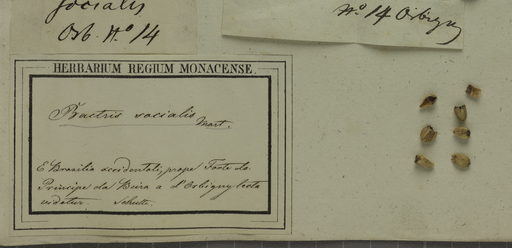 socialis
Orb. No 14
No 14 Orbigny
HERBARIUM REGIUM MONACENSE.
Bactris socialis
Mart.
E Brasilia occidentali, prope Forte do
Principe da Beira a d'Orbigny lecta
videtur. Schultz.